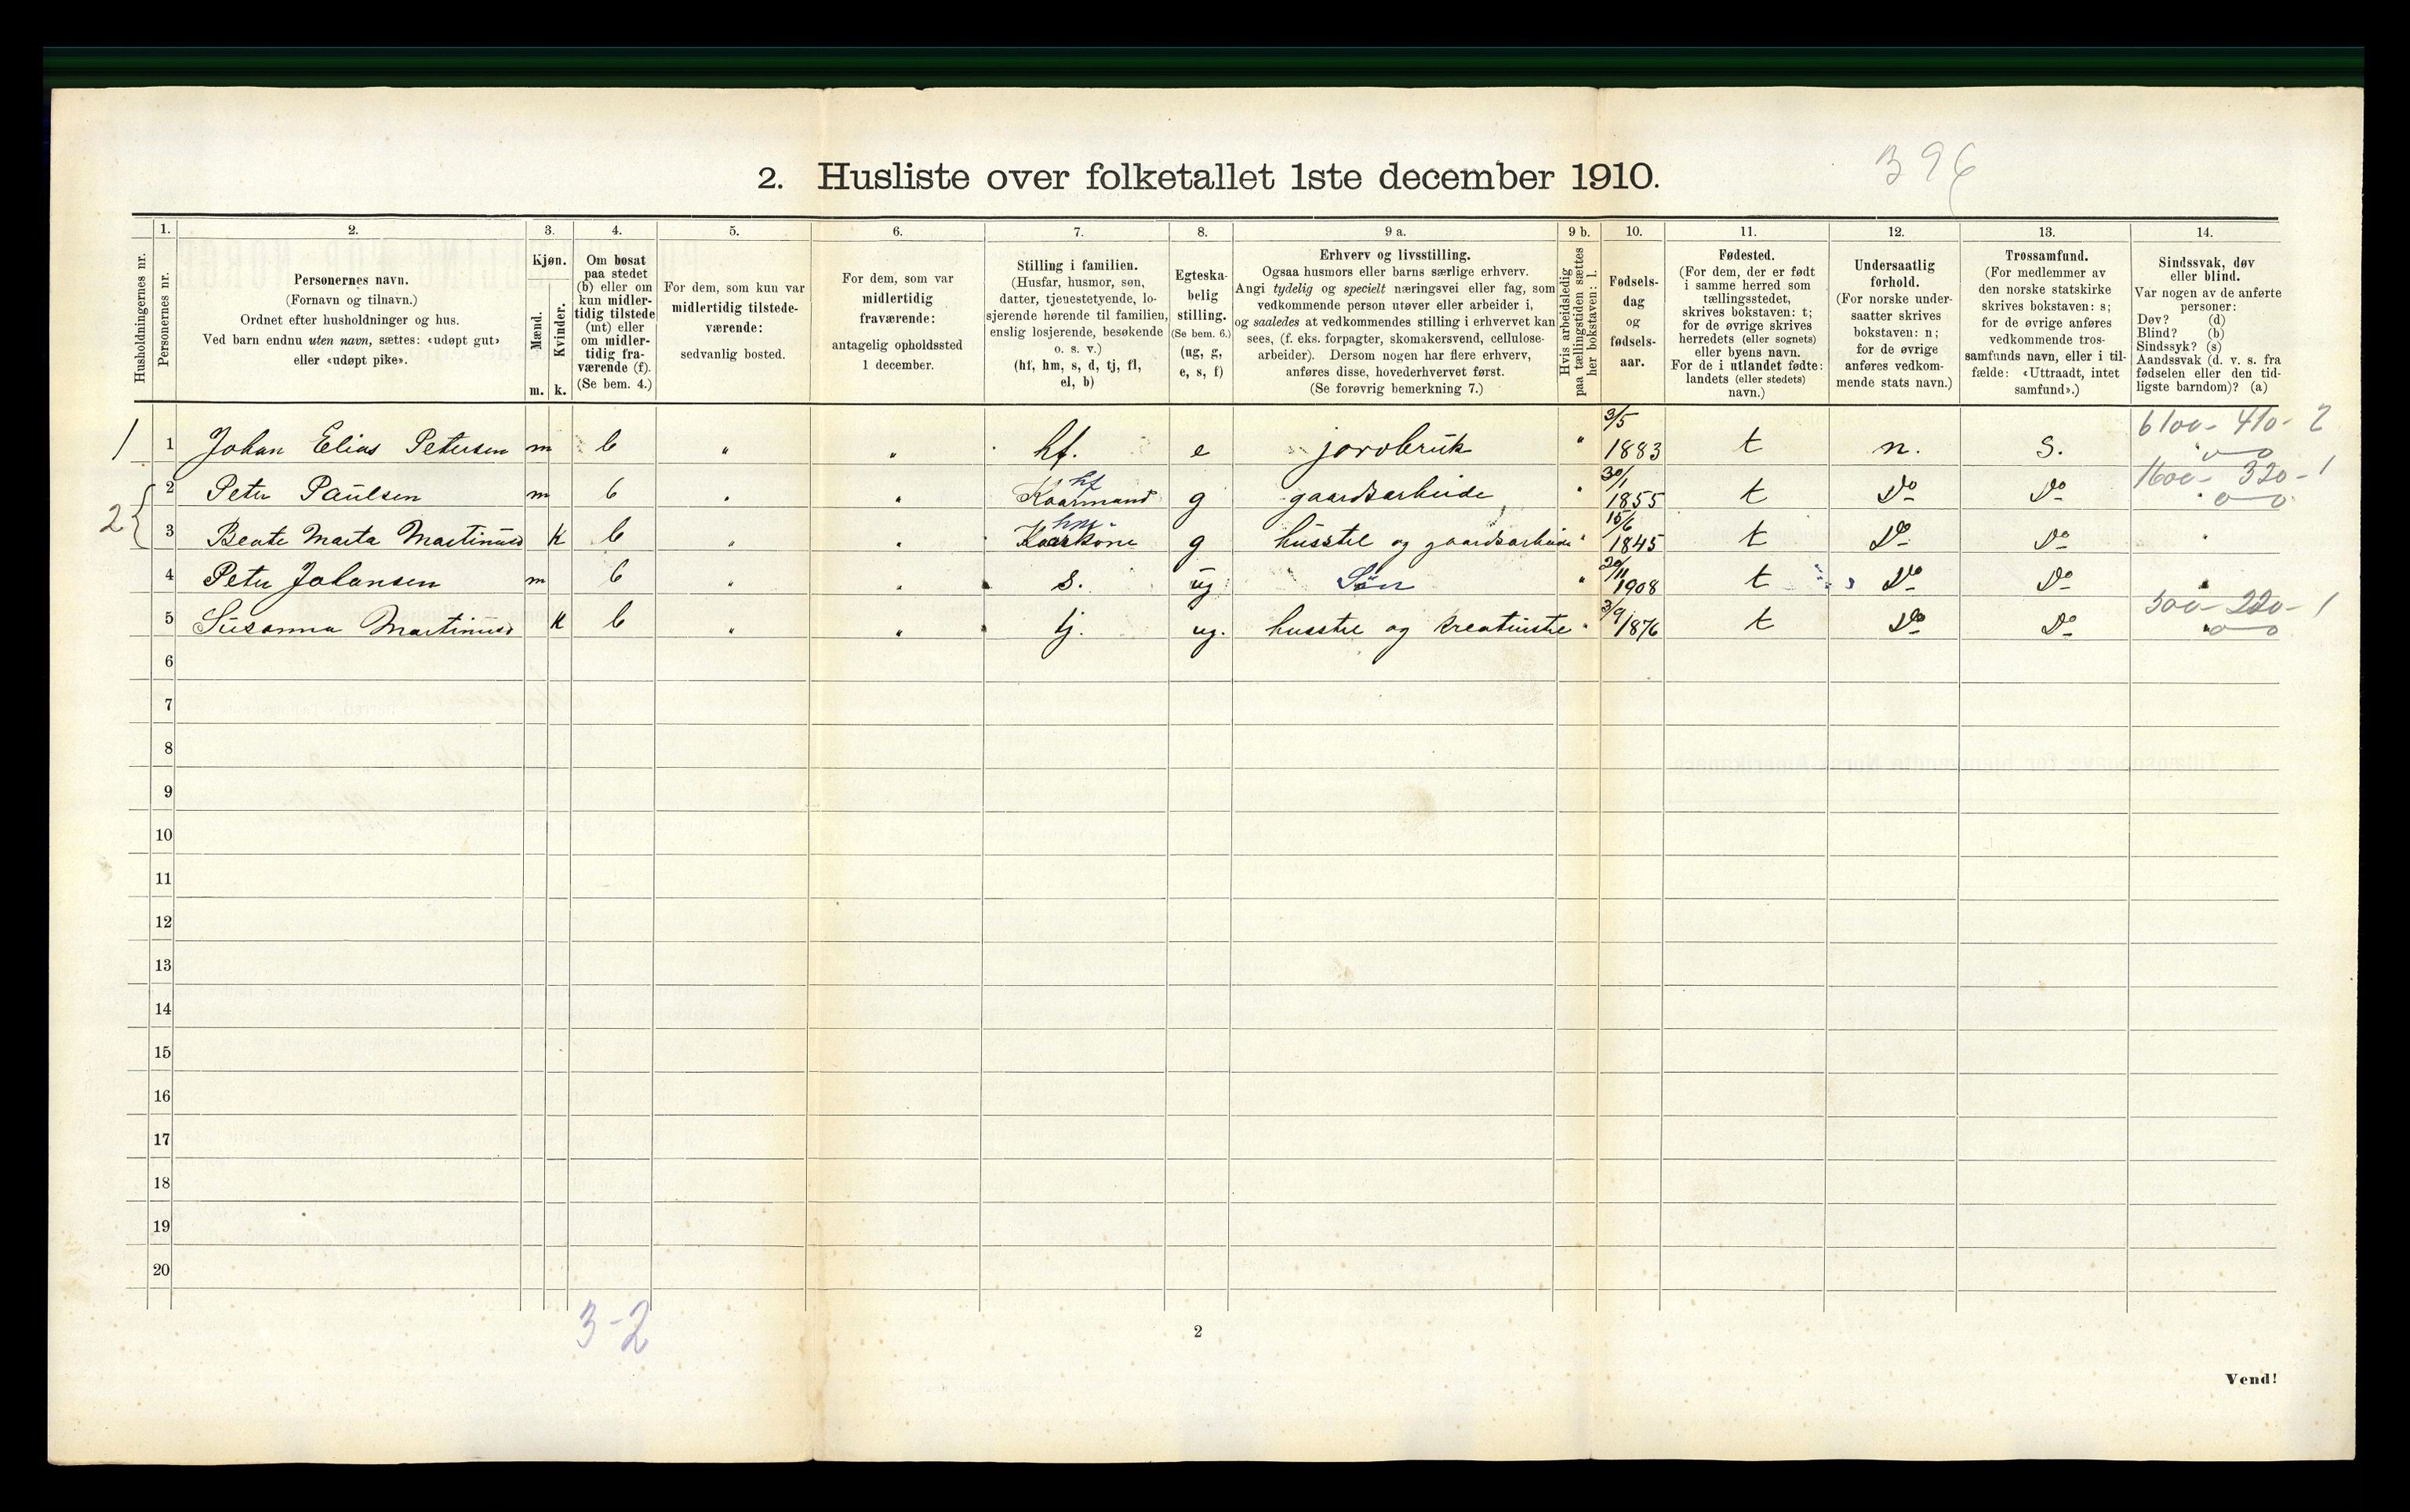 396
2. Husliste over folketallet 1ste december 1910.
Husholdningernes nr.
1.
Personernes nr.
2.
Personernes navn.
(Fornavn og tilnavn.)
Ordnet efter husholdninger og hus.
Ved barn endnu uten navn, sættes: «udøpt gut»
eller «udøpt pike».
3.
Kjøn.
Mænd.
Kvinder.
m. k.
4.
Om bosat
paa stedet
(b) eller om
kun midler-
tidig tilstede
(mt) eller
om midler-
tidig fra-
værende (f).
(Se bem. 4.)
5.
For dem, som kun var
midlertidig tilstede-
værende:
sedvanlig bosted.
6.
For dem, som var
midlertidig
fraværende:
antagelig opholdssted
1 december.
7.
Stilling i familien.
(Husfar, husmor, søn,
datter, tjenestetyende, lo-
sjerende hørende til familien,
enslig losjerende, besøkende
o. s. v.)
(hf, hm, s, d, tj, fl,
el, b)
8.
Egteska-
belig
stilling.
(Se bem. 6.)
(ug, g,
e, s, f)
9 a.
Erhverv og livsstilling.
Ogsaa husmors eller barns særlige erhverv.
Angi tydelig og specielt næringsvei eller fag, som
vedkommende person utøver eller arbeider i,
og saaledes at vedkommendes stilling i erhvervet kan
sees, (f. eks. forpagter, skomakersvend, cellulose-
arbeider). Dersom nogen har flere erhverv,
anføres disse, hovederhvervet først.
(Se forøvrig bemerkning 7.)
9 b.
Hvis arbeidsledig
paa tællingstiden sættes
her bokstaven: l.
10.
Fødsels-
dag
og
fødsels-
aar.
11.
Fødested.
(For dem, der er født
i samme herred som
tællingsstedet,
skrives bokstaven: t;
for de øvrige skrives
herredets (eller sognets)
eller byens navn.
For de i utlandet fødte:
landets (eller stedets)
navn.)
12.
Undersaatlig
forhold.
(For norske under-
saatter skrives
bokstaven: n;
for de øvrige
anføres vedkom-
mende stats navn.)
13.
Trossamfund.
(For medlemmer av
den norske statskirke
skrives bokstaven: s;
for de øvrige anføres
vedkommende tros-
samfunds navn, eller i til-
fælde: «Uttraadt, intet
samfund».)
14.
Sindssvak, døv
eller blind.
Var nogen av de anførte
personer:
Døv? (d)
Blind? (b)
Sindssyk? (s)
Aandssvak (d. v. s. fra
fødselen eller den tid-
ligste barndom)? (a)
1 1 Johan Elias Petersen m b " " hf. e jordbruk " 3/5 1883 t n. s. 6100 - 410 - 2
2 2 Peter Paulsen m b " " Kaarmand hf g gaardsarbeide " 30/1 1855 t Do Do 1600 - 320 - 1
3 Beate Marta Martinusd k b " " Kaarkone hm g husstel og gaardsarbeide " 15/6 1845 t Do Do "
4 Peter Johansen m b " " s. ug Søn " 20/11 1908 t Do Do "
5 Susanna Martinusd k b " " tj. ug. husstel og kreaturstel " 3/9 1876 t Do Do 500 - 220 - 1
6
7
8
9
10
11
12
13
14
15
16
17
18
19
20
3-2
2
Vend!